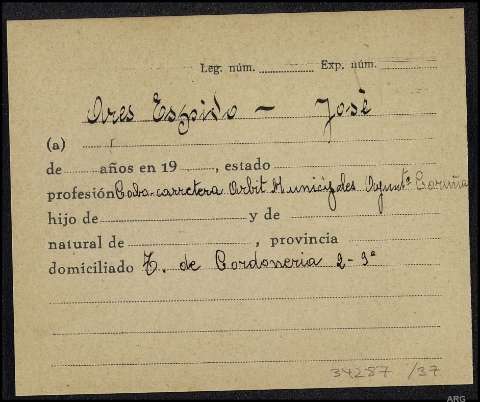 Leg. núm. Exp. núm.
Ores Espido - José
(a)
de años en 19 , estado
profesión Cabo-carretera Arbit Municipales Ayunt.º Coruña
hijo de y de
natural de , provincia
domiciliado T. de Cordoneria 2-3º
34287 /37
ARG